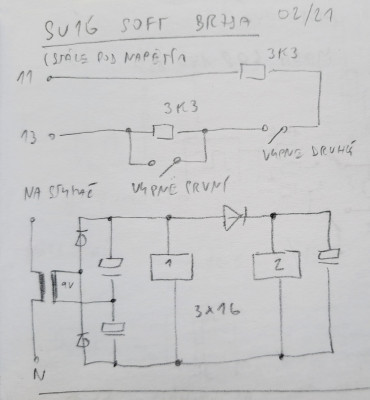 SV16 SOFT BRZDA 02/21
(STÁLE POD NAPĚTÍM
3K3
11
3K3
13
VYPNE DRUHÉ
VYPNE PRVNÍ
NA STYKAČ
9V
1
2
3x16
N